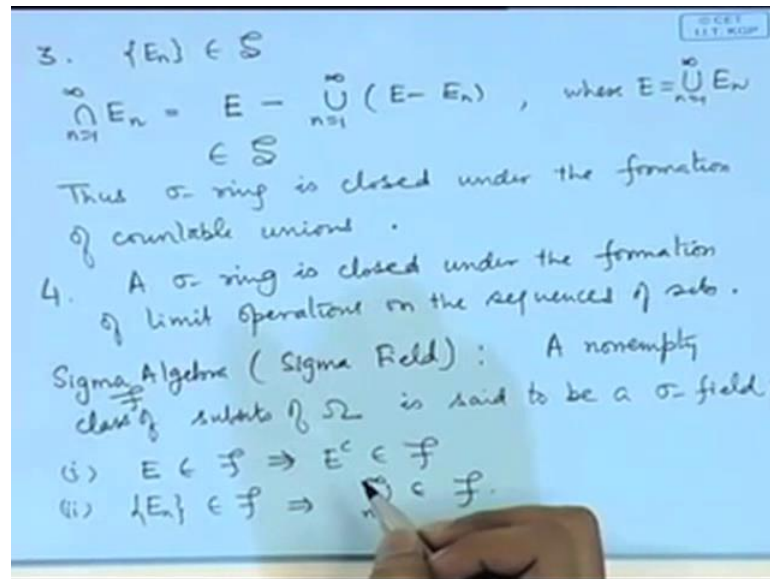 © CET
I.I.T. KGP
3. {Eₙ} ∈ S
∞ ∞ ∞
∩ Eₙ = E − ∪ (E − Eₙ) , where E = ∪ Eₙ
n=1 n=1 n=1
∈ S
Thus σ- ring is closed under the formation
of countable unions .
4. A σ- ring is closed under the formation
of limit operations on the sequences of sets .
Sigma Algebra ( Sigma Field) : A nonempty
class ℱ of subsets of Ω is said to be a σ- field
(i) E ∈ ℱ ⇒ Eᶜ ∈ ℱ
(ii) {Eₙ} ∈ ℱ ⇒ ∈ ℱ.